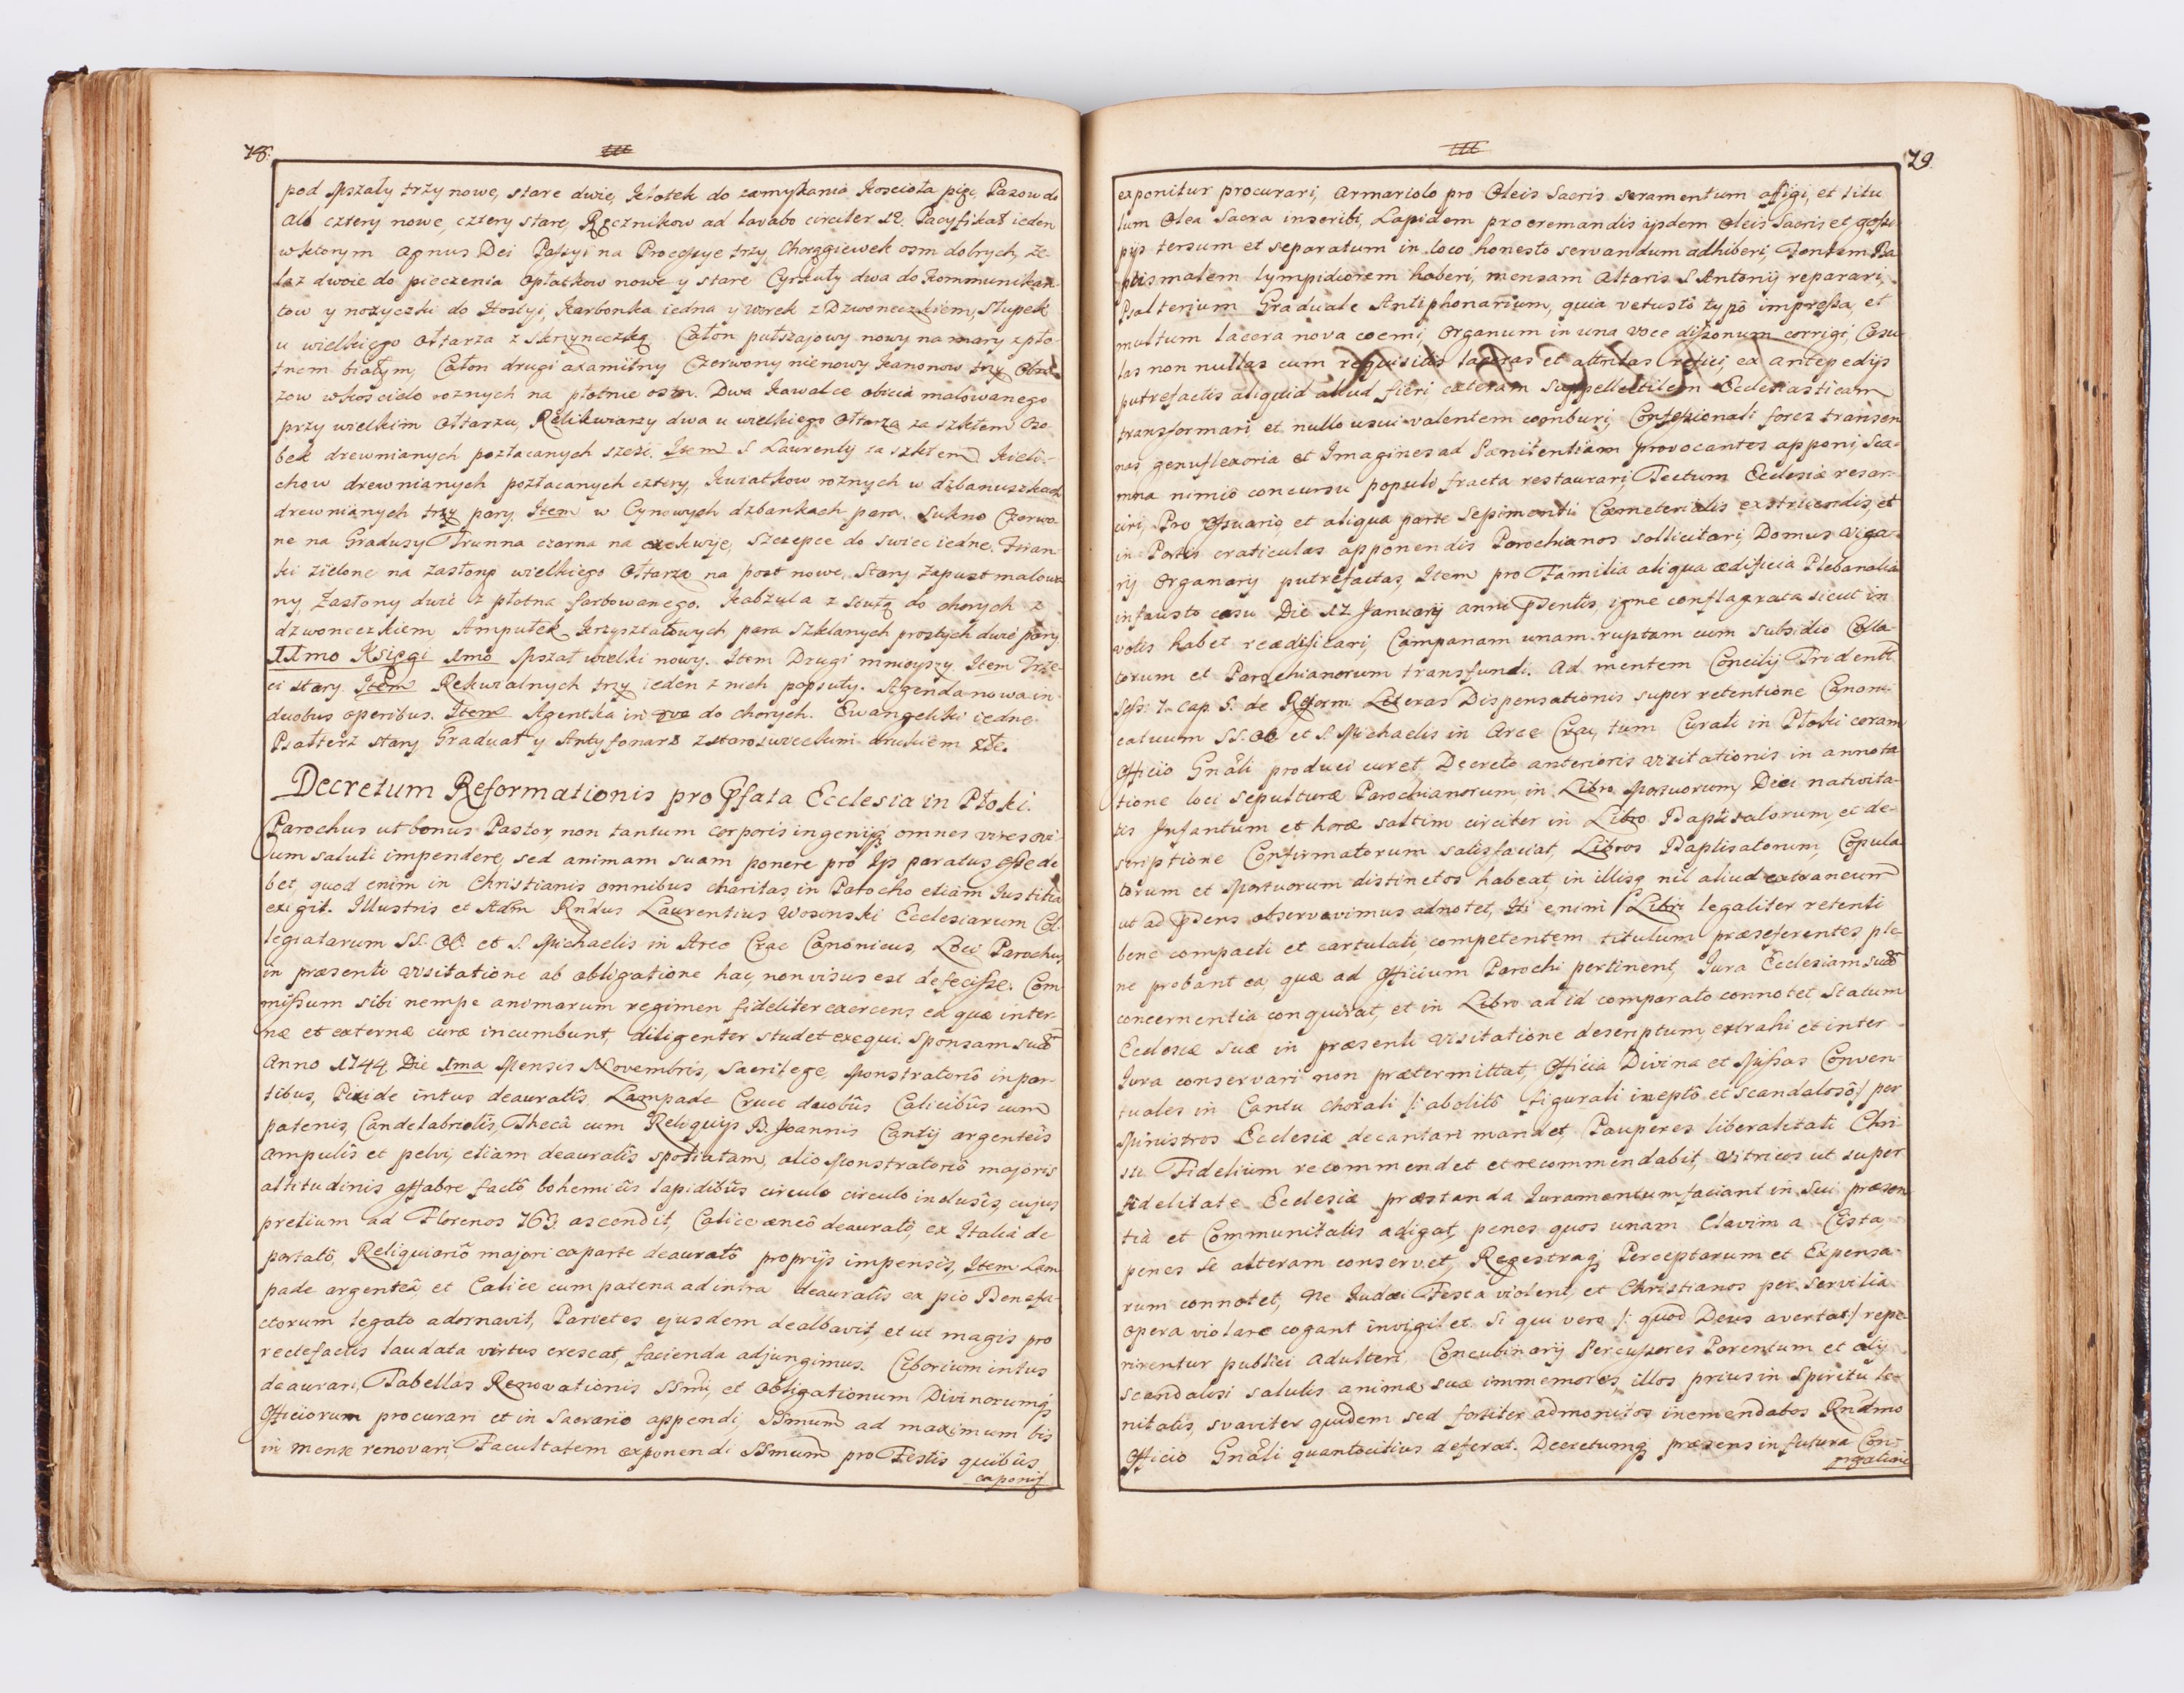 78.
pod Mszały trzy nowe, stare dwie, Kłotek do zamykania Koscioła pięc, Pasow do
Alb cztery nowe, cztery stare, Ręcznikow ad lavabo circiter 12. Pacyfikał ieden
w ktorym Agnus Dei Passyi na Processye trzy, Chorągiewek osm dobrych, Że-
laz dwoie do pieczenia Opłatkow nowe y stare Cyrkuły dwa do Kommunikan-
tow y nozyczki do Hostyi, Karbonka iedna y Worek z Dzwoneczkiem, Słupek
u wielkiego Ołtarza z Skrzyneczką Całon pułszajowy nowy na mary z pło-
tnem białym, Całon drugi axamitny Czerwony nie nowy Kanonow trzy Obra-
zow w kosciele roznych na płotnie osm. Dwa Kawalce obicia malowanego
przy wielkim Ołtarzu, Relikwiarzy dwa u wielkiego Ołtarza za szkłem Oso-
bek drewnianych pozłacanych szesc. Item S Laurenty za szkłem Kieli-
chow drewnianych pozłacanych cztery, Kwiatkow roznych w dzbanuszkach
drewnianych trzy pary. Item w Cynowych dzbankach para. Sukno Czerwo-
ne na Gradusy Trunna czarna na exekwije, Szczepce do swiec iedne. Firan-
ki zielone na zasłonę wielkiego Ołtarza na post nowe. Stary Zapust malowa-
ny, Zasłony dwie z płotna farbowanego. Kabzula z Stułą do chorych z
dzwoneczkiem Ampułek Krzyształowych para Szklanych prostych dwie pary.
11mo Księgi 1mo Mszał wielki nowy. Item Drugi mnieyszy Item Trze-
ci stary Item Rekwialnych trzy ieden z nich popsuty. Agenda nowa in
duobus operibus. Item Agentka in 8vo do chorych. Ewangeliki iedne
Psałterz stary Graduał y Antyfonarz z staroswieckim drukiem złe.
Decretum Reformationis pro Pfata Ecclesia in Płoki.
Parochus ut bonus Pastor, non tantum corporis ingeniiq omnes vires ovi-
um saluti impendere, sed animam suam ponere pro Ijs paratus esse de
bet, quod enim in Christianis omnibus charitas, in Parocho etiam Iustitia
exigit. Illustris et Adm Rndus Laurentius Wosinski Ecclesiarum Col-
legiatarum SS. OO. et S. Michaelis in Arce Crac Canonicus, Loci Parochus,
in præsenti visitatione ab obligatione hac, non visus est defecisse. Com
missum sibi nempe animarum regimen fideliter exercens ea quæ inter-
næ et externæ curæ incumbunt, diligenter studet exequi. Sponsam suam
Anno 1744 Die 1ma Mensis Novembris, Sacrilege, Monstratoriô in par-
tibus, Pixide intus deauratis, Lampade Cruce duobus Calicibûs cum
patenis, Candelabriolis, Thecâ cum Reliquijs B. Joannis Cantij argenteis
ampulis et pelvi, etiam deauratis spoliatam, alio Monstratoriô majoris
altitudinis affabre factô bohemicis lapidibûs circulo circulo inclusis, cujus
pretium ad Florenos 763. ascendit, Calice æneô deauratô, ex Italiâ de
portatô, Reliquiariô majori ex parte deauratô proprijs impensis, Item Lam
pade argenteâ et Calice cum patena ad intra deauratis ex pio Benefa-
ctorum legato adornavit, Parietes ejusdem dealbavit, et ut magis pro
rectefactis laudata virtus crescat, facienda adjungimus. Ciborium intus
deaurari, Tabellas Renovationis SSmi, et Obligationum Divinorumq
Officiorum procurari et in Sacrario appendi, SSmum ad maximum bis
in mense renovari, Facultatem exponendi SSmum pro Festis quibûs
exponit
79
exponitur procurari, Armariolo pro Oleis Sacris seramentum affigi, et titu
lum Olea Sacra inscribi, Lapidem pro cremandis ijsdem Oleis Sacris et gossi-
pijs tersum et separatum in loco honesto servandum adhiberi, Fontem Ba
ptismalem lympidiorem haberi, mensam Altaris S Antonij reparari,
Psalterium Graduale Antiphonarium, quia vetustô typô impressa, et
multum lacera nova coemi, Organum in una voce dissonum corrigi, Casu
las non nullas cum requisitis laceras et attritas refici, ex antepedijs
putrefactis aliquid aliud fieri cæteram Suppellectilem Ecclesiasticam
transformari, et nullo usui valentem comburi, Confessionali fores transen
nas, genuflexoria et Imagines ad Pænitentiam provocantes apponi, Sca-
mna nimiô concursu populi fracta restaurari, Tectum Ecclesiæ resar-
ciri, Pro Ossuario, et aliqua parte Sepimenti Cæmeterialis exstruendis, et
in Portis craticulas apponendis Parochianos sollicitari, Domus Vica-
rij Organarij putrefactas, Item pro Familia aliqua ædificia Plebanalia
infausto casu Die 17 Januarij anni Pdentis, igne conflagrata sicut in
votis habet reædificari, Campanam unam ruptam cum subsidio Colla-
torum et Parochianorum transfundi. Ad mentem Concilij Tridentt
Sess: 7. cap. 5. de Reform. Literas Dispensationis super retentione Canoni-
catuum SS. OO et S. Michaelis in Arce Crac, tum Curati in Płoki coram
Officio Gnâli produci curet, Decreto anterioris visitationis in annota
tione loci sepulturæ Parochianorum, in Libro Mortuorum, Diei nativita-
tis Infantum et horæ saltim circiter in Libro Baptisatorum, ei de-
scriptione Confirmatorum satisfaciat, Libros Baptisatorum, Copula
torum et Mortuorum distinctos habeat, in illisq nil aliud extraneum
ut ad Pdens observavimus adnotet, Iti enim Libri legaliter retenti
bene compacti et cartulati, competentem titulum præseferentes ple-
ne probant ea, quæ ad Officium Parochi pertinent, Jura Ecclesiam suam
concernentia conquirat, et in Libro ad id comparato connotet Statum
Ecclesiæ suæ in præsenti visitatione descriptum, extrahi et inter
Iura conservari non prætermittat, Officia Divina et Missas Conven-
tuales in Cantu chorali /: abolitô figurali ineptô et scandalosô :/ per
Ministros Ecclesiæ decantari mandet, Pauperes liberalitati Chri-
sti Fidelium recommendet et recommendabit, Vitricos ut super
fidelitate Ecclesiæ præstanda Iuramentum faciant in sui præsen
tiâ et Communitatis adigat, penes quos unam Clavim a Cista,
penes se alteram conservet, Regestraq Perceptarum et Expensa-
rum connotet, Ne Iudæi Festa violent, et Christianos per servilia
opera violare cogant invigilet. Si qui vero /: quod Deus avertat :/ repe-
rirentur publici Adulteri, Concubinarij Percussores Parentum et alij
scandalosi salutis animæ suæ immemores, illos prius in Spiritu le-
nitatis, svaviter quidem sed fortiter admonitos inemendatos Rndmo
Officio Gnâli quantocitius deferat. Decretumq præsens in futura Con-